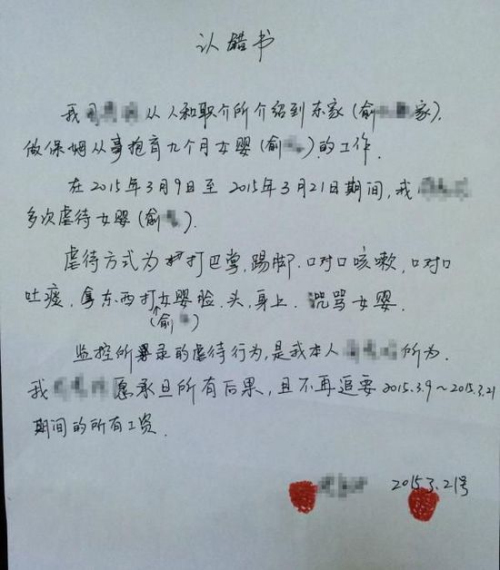 认错书
我 从人和职介所介绍到东家(俞 家).
做保姆从事抱育九个月女婴(俞 )的工作.
在2015年3月9日至2015年3月21日期间,我
多次虐待女婴(俞 ).
虐待方式为打巴掌.踢脚.口对口咳嗽.口对口
吐痰.拿东西打女婴脸、头、身上.咒骂女婴.
(俞 )
监控所录的虐待行为,是我本人 所为.
我 愿承旦所有后果,且不再追要2015.3.9~2015.3.21
期间的所有工资.
2015.3.21号